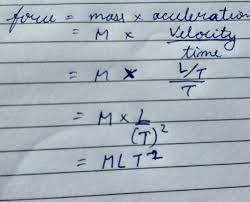 force = mass × aculeration
= M × Velocity/time
= M × L/T/T
= M × L/(T)²
= MLT⁻²